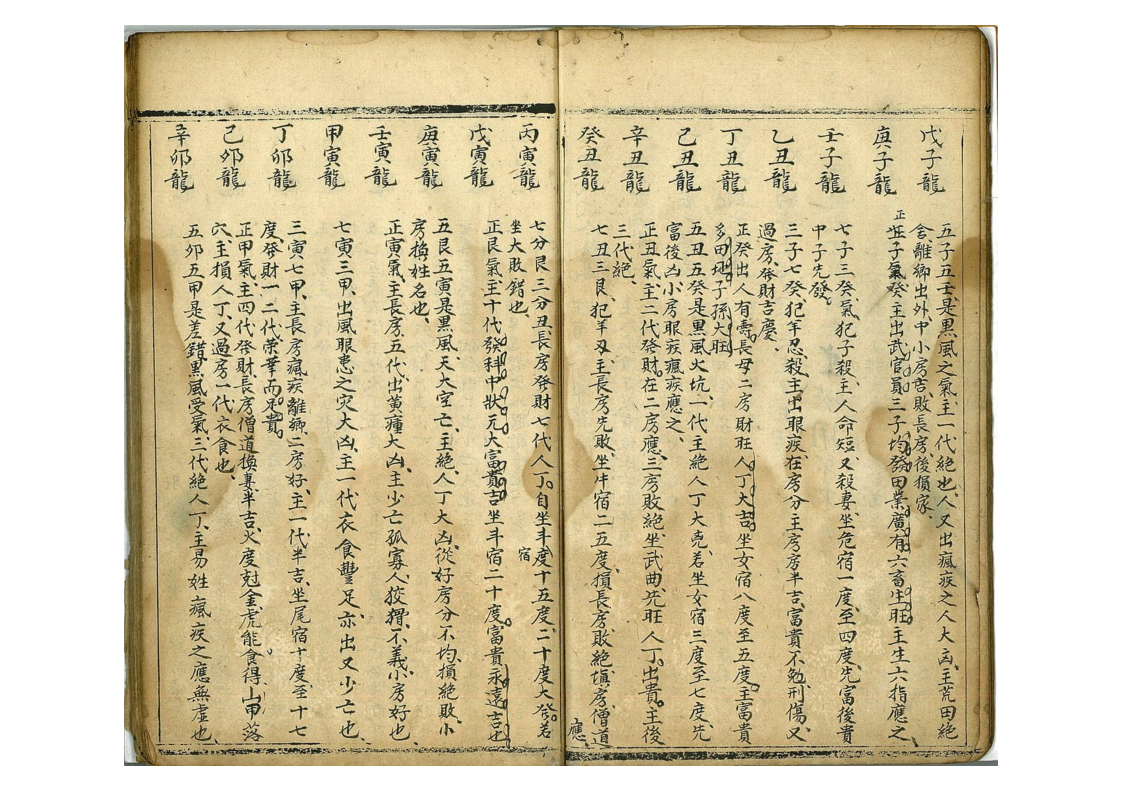 戊子龍
五子五壬是黒風之氣主一代絕也人又出瘋疾之人大凶主荒田絕
舍離鄉出外中小房吉敗長房後損家
庚子龍
正
子氣癸主出武官員三子均發田業廣有六畜生旺主生六指應之
壬子龍
七子三癸氣犯子殺主人命短又殺妻坐危宿一度至四度先富後貴
中子先發
乙丑龍
三子七癸犯羊忍殺主出眼疾在房分主房房半吉富貴不免刑傷又
過房發財吉慶
丁丑龍
正癸出人有壽長母二房財旺人丁大吉坐女宿八度至五度主富貴
多田地子孫大旺
己丑龍
五丑五癸是黒風火坑一代主絕人丁大凶若坐女宿三度至七度先
富後凶小房眼疾瘋疾應之
辛丑龍
正丑氣主二代發財在二房應三房敗絕坐武曲先旺人丁出貴主後
三代絕
癸丑龍
七丑三艮犯羊刃主長房先敗坐牛宿二五度損長房敗絕填房僧道
應
丙寅龍
七分艮三分丑長房發財七代人丁自坐斗度十五度二十度大發若
宿
坐大敗錯也
戊寅龍
正艮氣主十代發科中狀元大富貴吉坐斗宿二十度富貴永遠吉也
庚寅龍
五艮五寅是黒風天大空亡主絕人丁大凶從好房分不均損絕敗小
房換姓名也
壬寅龍
正寅氣主長房五代出黃瘇大凶主少亡孤寡人狡猾不義小房好也
甲寅龍
七寅三甲出風眼患之灾大凶主一代衣食豐足亦出又少亡也
丁卯龍
三寅七甲主長房瘋疾離鄉二房好主一代半吉坐尾宿十度至十七
度發財一二代榮華而足貴
己卯龍
正甲氣主四代發財長房僧道換妻半吉火度尅金虎能食得山甲落
穴主損人丁又過房一代衣食也
辛卯龍
五卯五甲是差錯黒風受氣三代絕人丁主易姓瘋疾之應無虚也